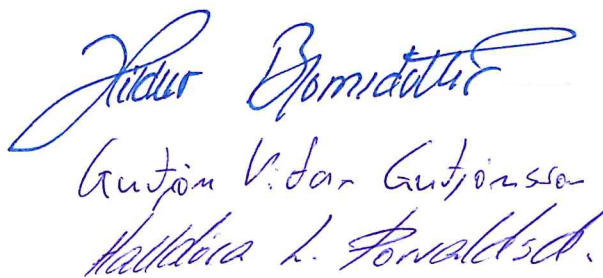 Hildur Björnsdóttir
Guðjón Viðar Guðjónsson
Halldóra L. Þorvaldsd.